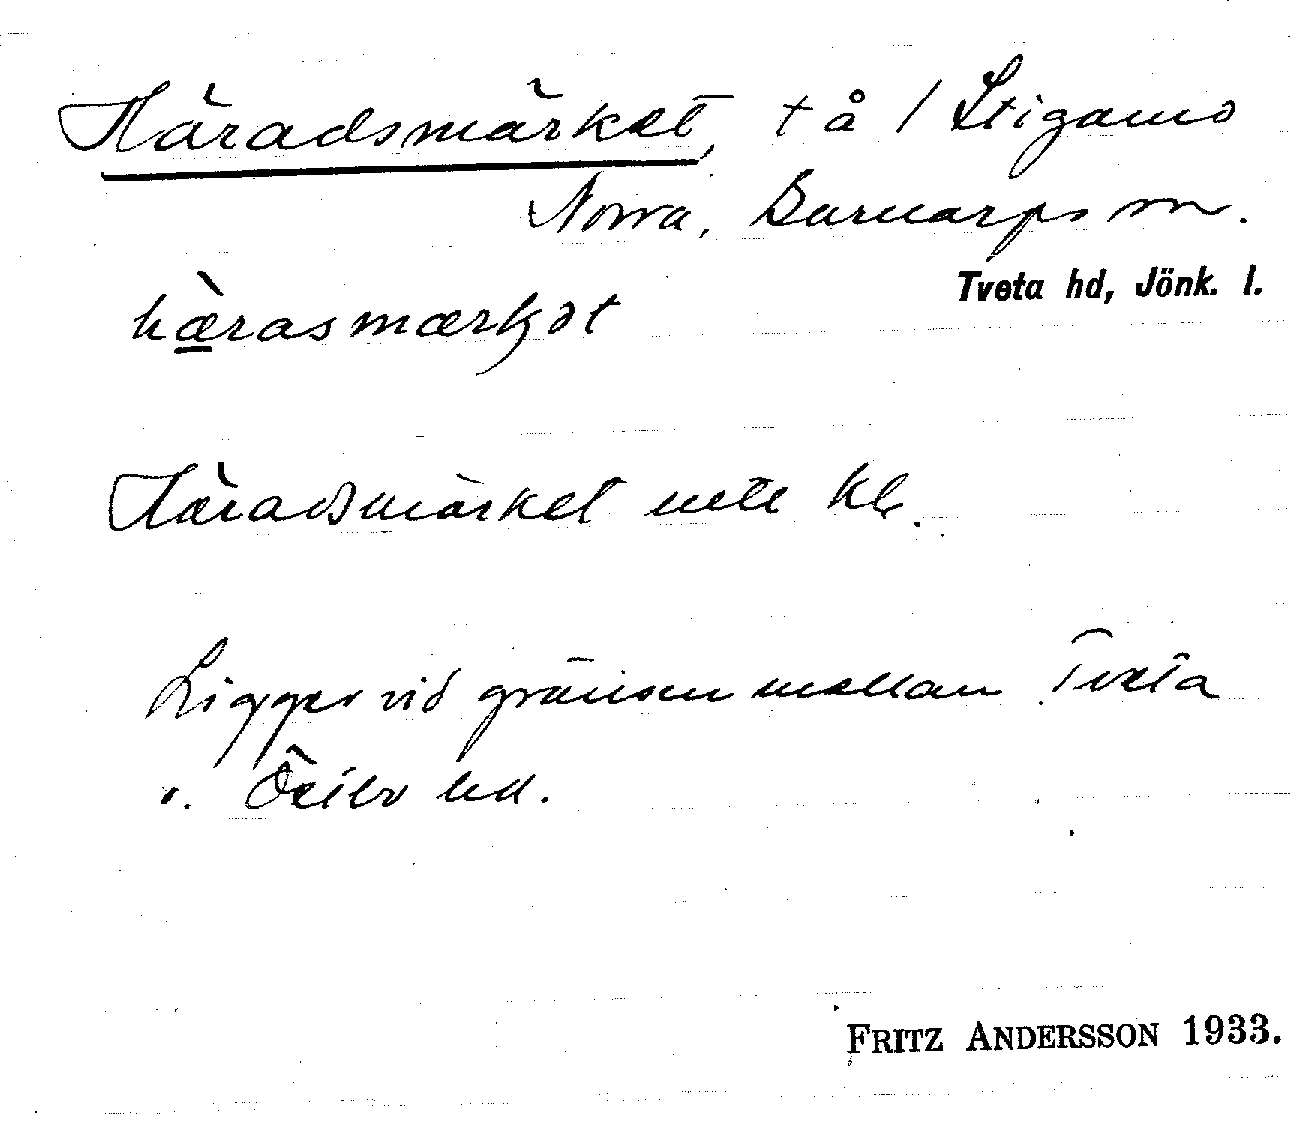 Häradsmärket, tå / Stigamo
Norra, Barnarps sn.
Tveta hd, Jönk. l.
hæ̀rasmærkət
Häradsmärket uttl kb.
Ligger vid gränsen mellan Tveta
o. Östbo hd.
FRITZ ANDERSSON 1933.